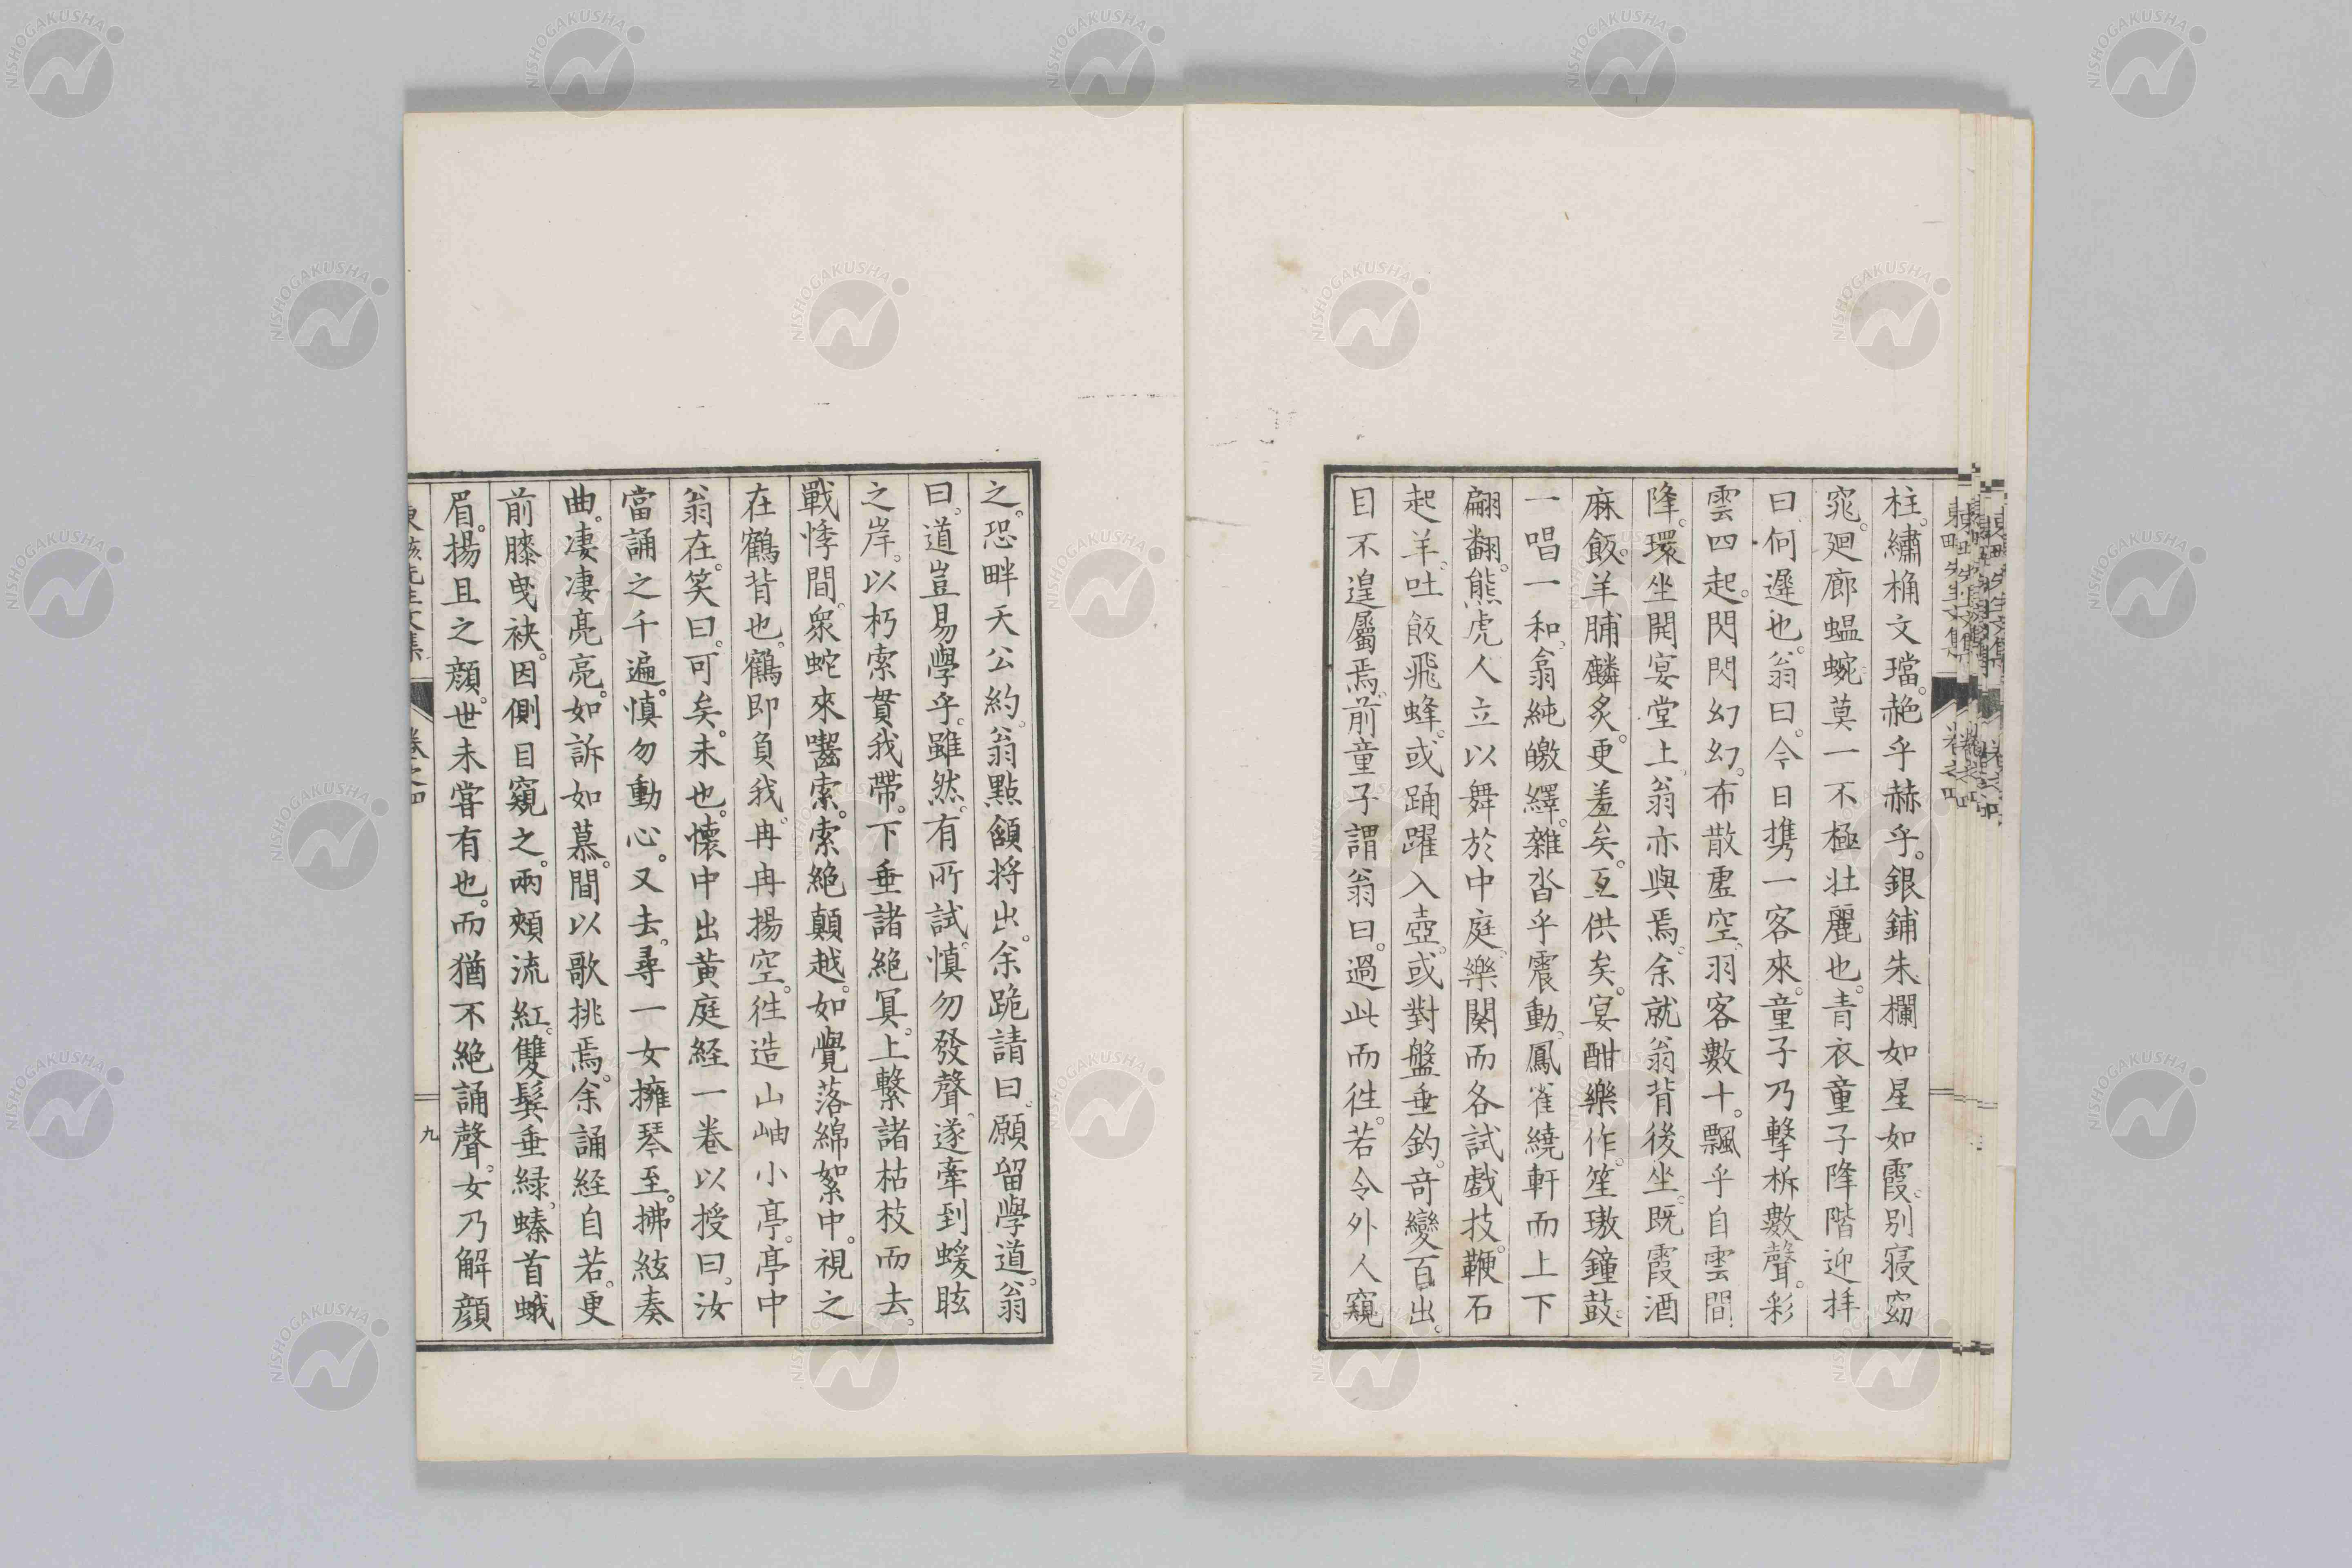 柱。繡桷文璫。赩乎赫乎。銀鋪朱欄如星如霞。別寢窈
窕。廻廊蝹蜿莫一不極壯麗也。青衣童子降階迎拝
曰何遲也。翁曰。今日携一客來。童子乃擊柝數聲。彩
雲四起。閃閃幻幻。布散虛空。羽客數十。飄乎自雲間
降。環坐開宴堂上。翁亦與焉。余就翁背後坐。既霞酒
麻飯。羊脯麟炙。更羞矣。互供矣。宴酣樂作。笙璈鐘鼓。
一唱一和。翕純皦繹。雜沓乎震動。鳳雀繞軒而上下
翩翻。熊虎人立以舞於中庭。樂闋而各試戲技。鞭石
起羊。吐飯飛蜂。或踊躍入壺。或對盤垂釣。奇變百出。
目不遑屬焉。前童子謂翁曰。過此而徃。若令外人窺
之。恐畔天公約。翁點頷将出。余跪請曰。願留學道。翁
曰。道豈易學乎。雖然。有所試。慎勿發聲。遂牽到蝯眩
之岸。以朽索貫我帶。下垂諸絶冥。上繫諸枯枝而去。
戰悸間。衆蛇來齧索。索絶顛越。如覺落綿絮中。視之
在鶴背也。鶴即負我。冉冉揚空。徃造山岫小亭。亭中
翁在。笑曰。可矣。未也。懷中出黄庭経一卷以授曰。汝
當誦之千遍。慎勿動心。又去。尋一女擁琴至。拂絃奏
曲。凄凄亮亮。如訴如慕。間以歌挑焉。余誦経自若。更
前膝曳袂。因側目窺之。兩頰流紅。雙鬟垂緑。螓首蛾
眉。揚且之顔。世未嘗有也。而猶不絶誦聲。女乃解顔
九
NISHOGAKUSHA